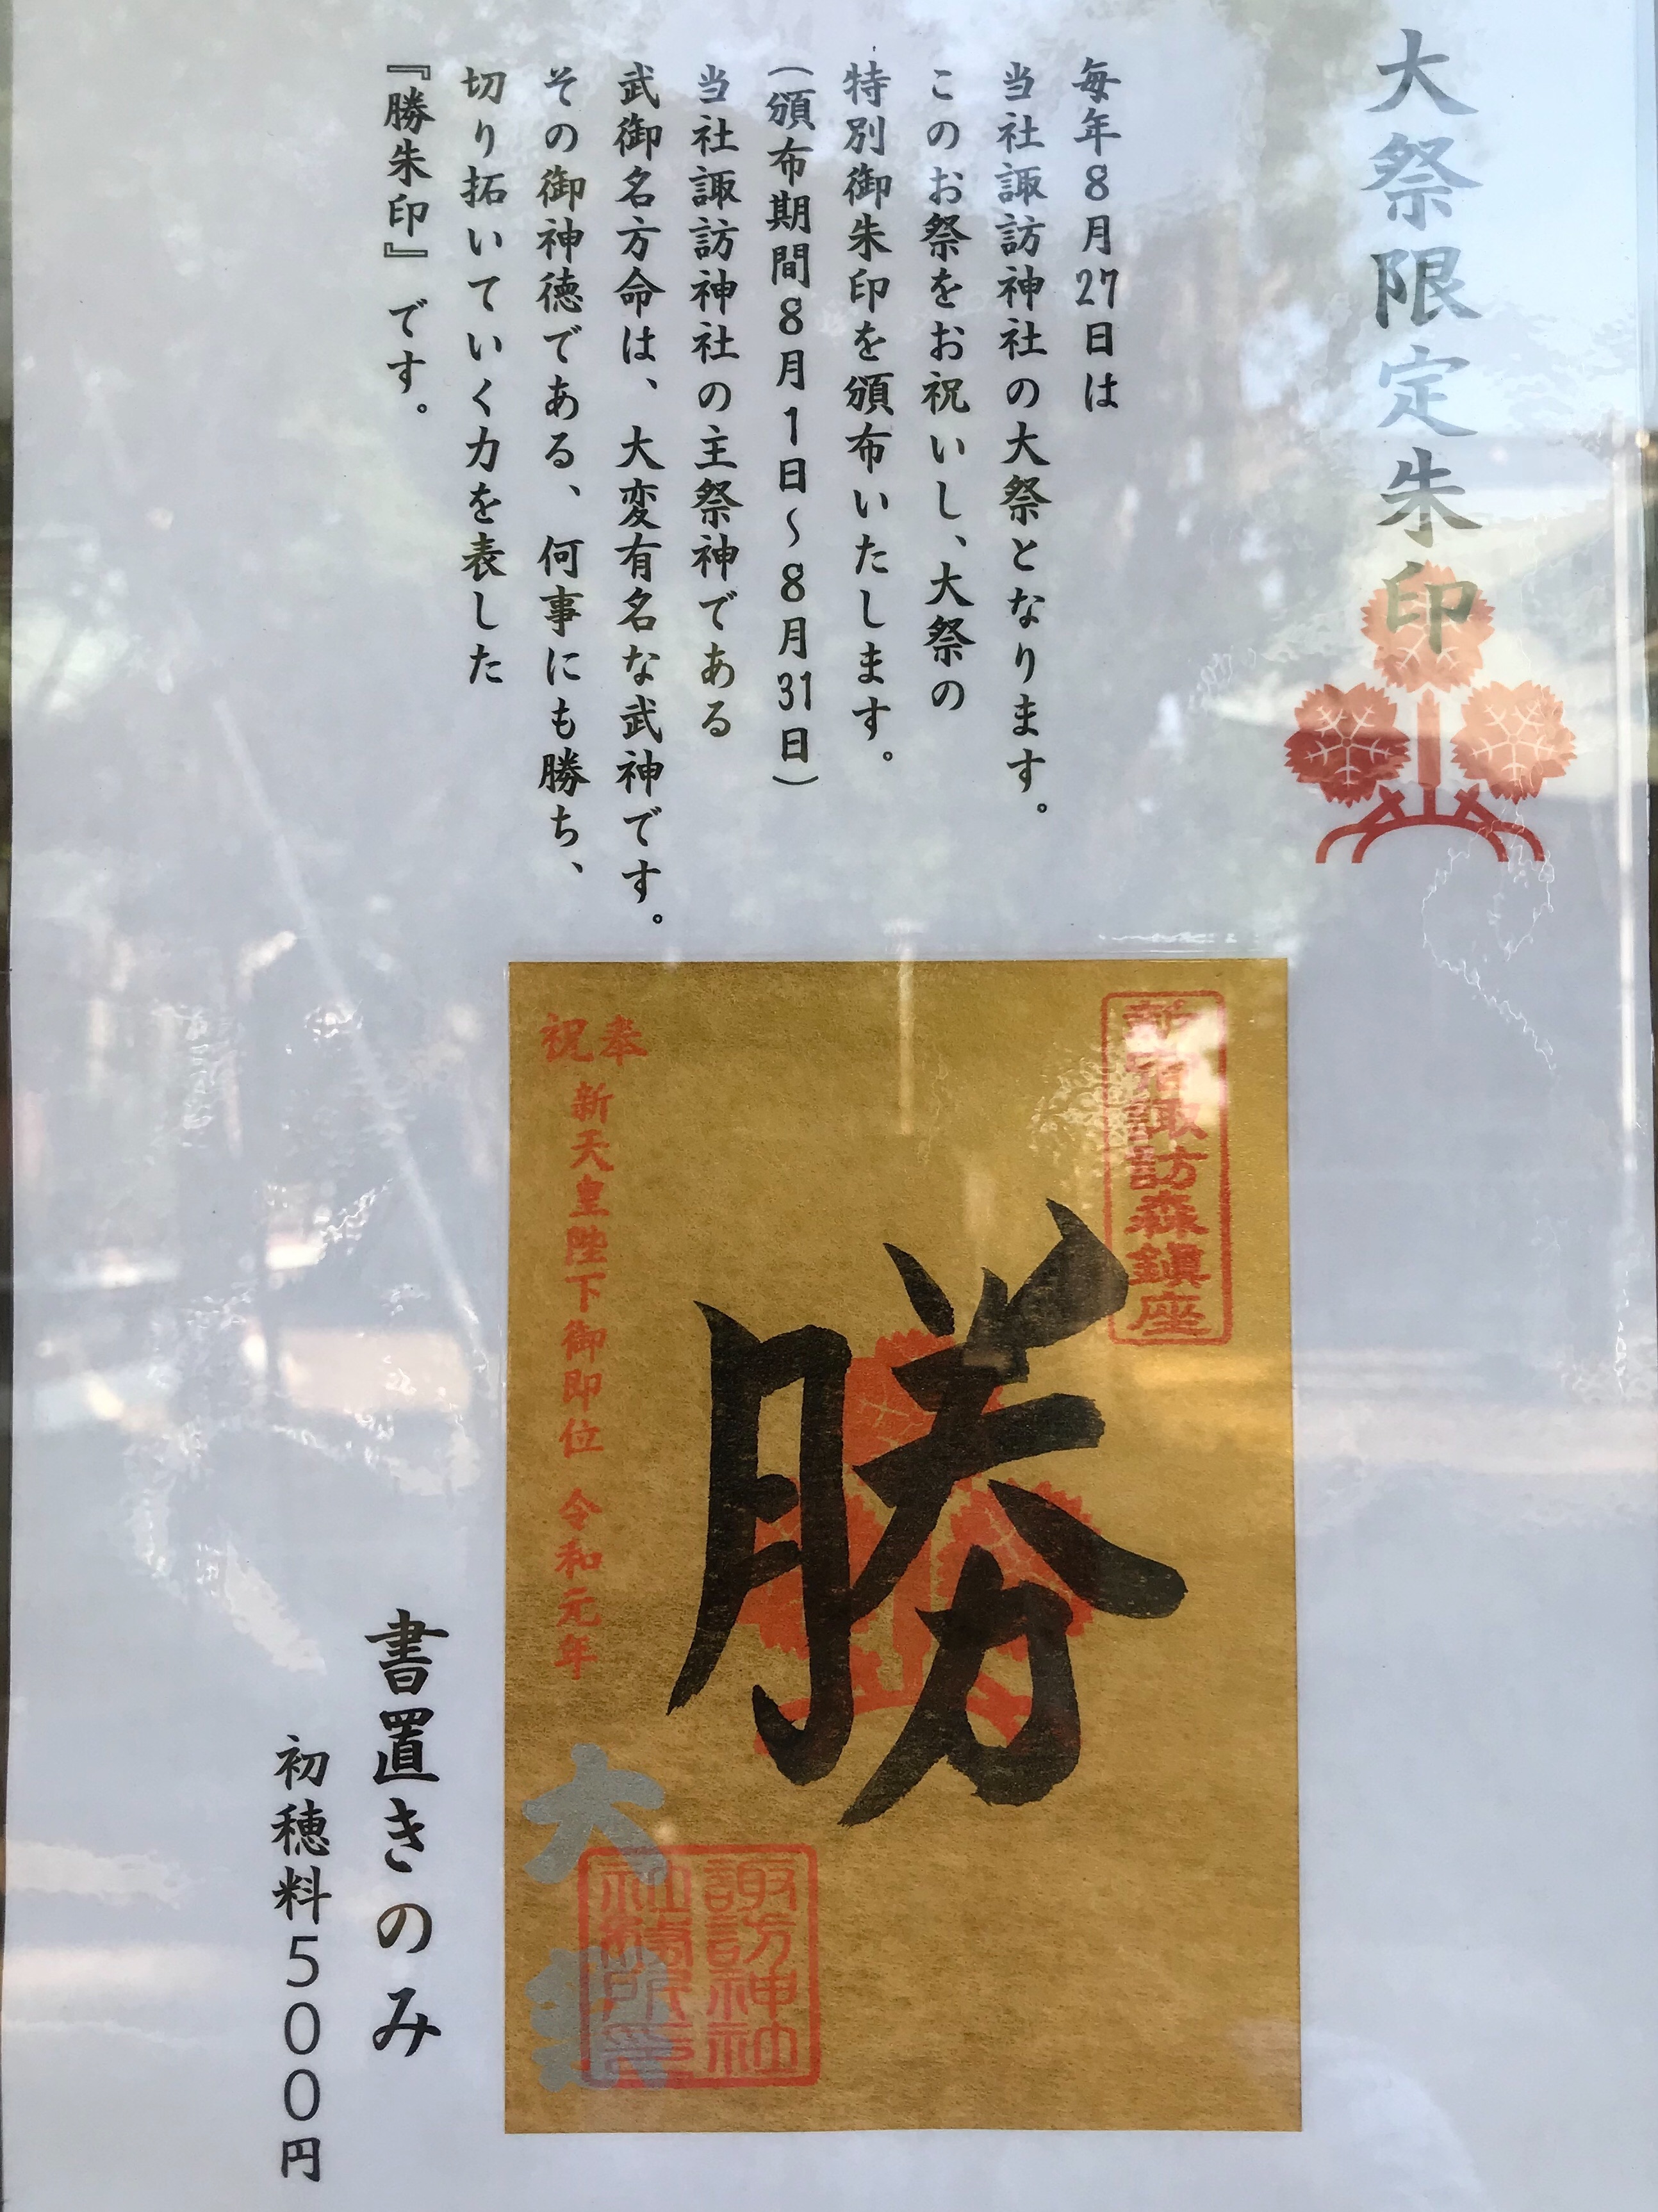 大祭限定朱印
毎年8月27日は
当社諏訪神社の大祭となります。
このお祭をお祝いし、大祭の
特別御朱印を頒布いたします。
(頒布期間8月1日～8月31日)
当社諏訪神社の主祭神である
武御名方命は、大変有名な武神です。
その御神徳である、何事にも勝ち、
切り拓いていく力を表した
『勝朱印』です。
新宿諏訪森鎭座
勝
奉祝
新天皇陛下御即位 令和元年
大祭
諏訪神社
書置きのみ
初穂料500円